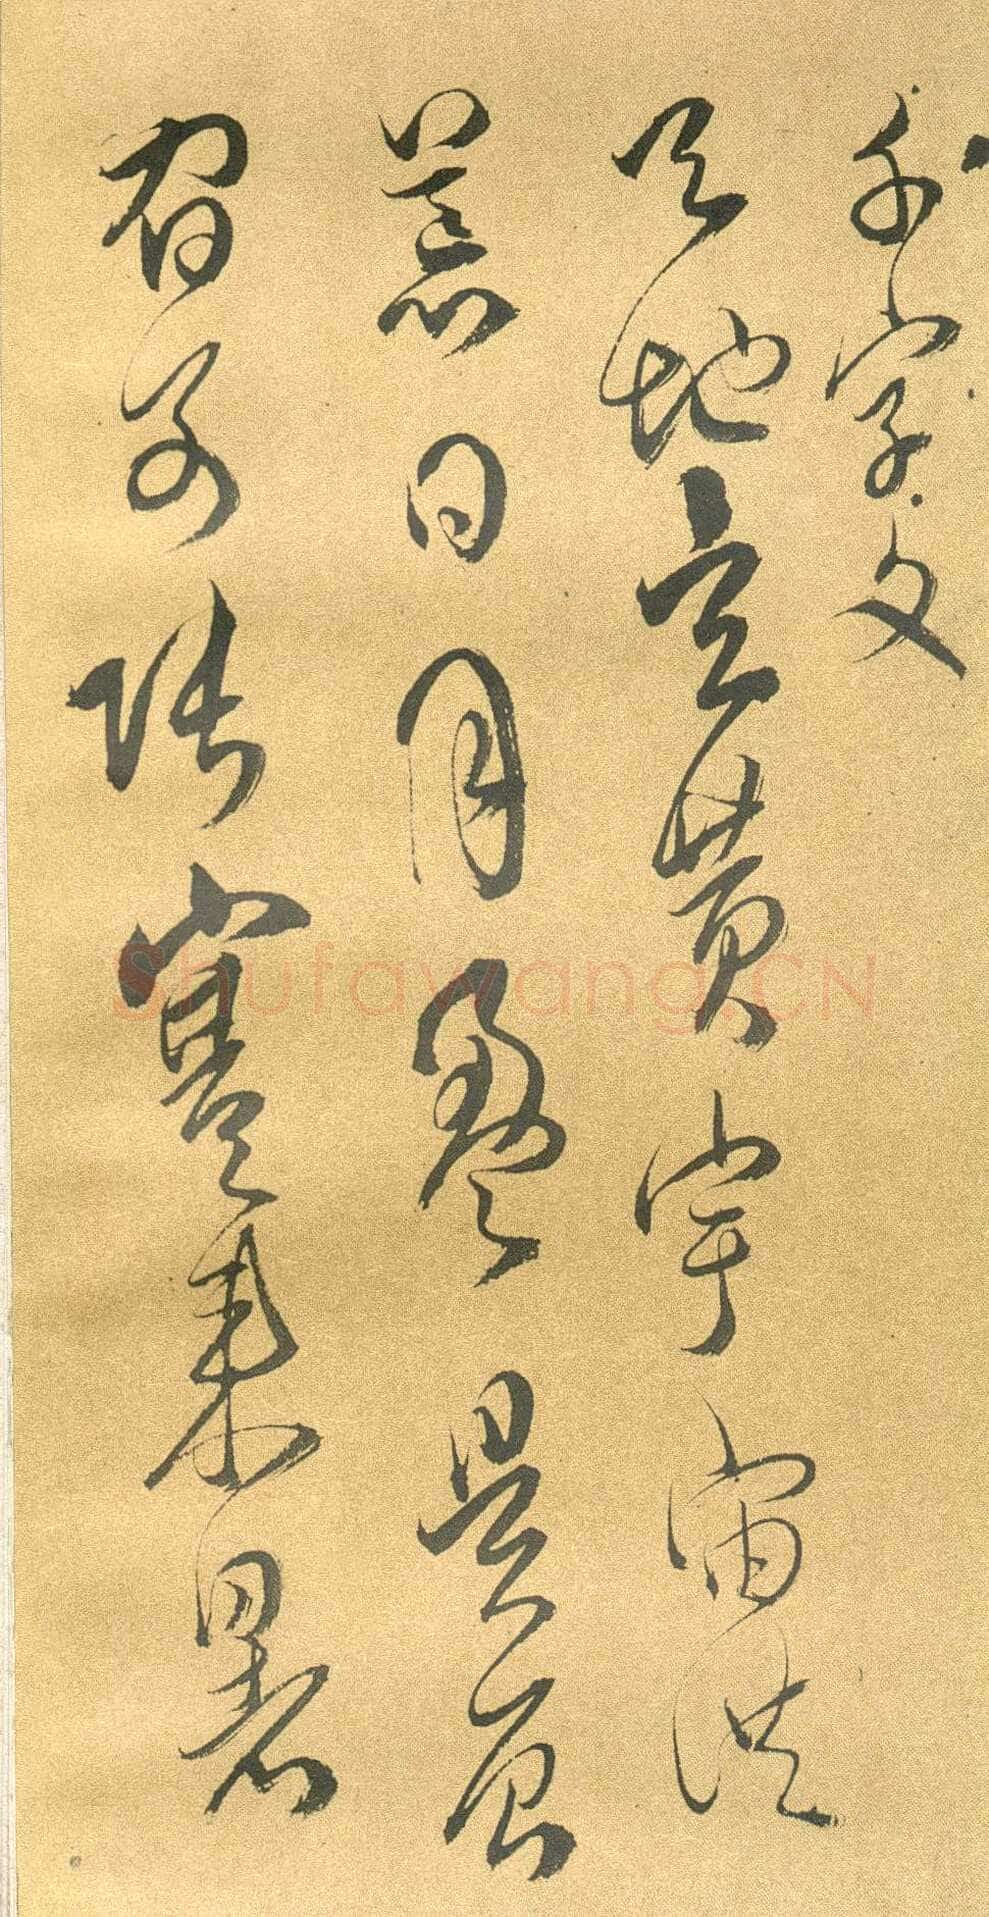 千字文
天地玄黃宇宙洪
荒日月盈昃辰
宿列張寒來暑
Shufawang.CN